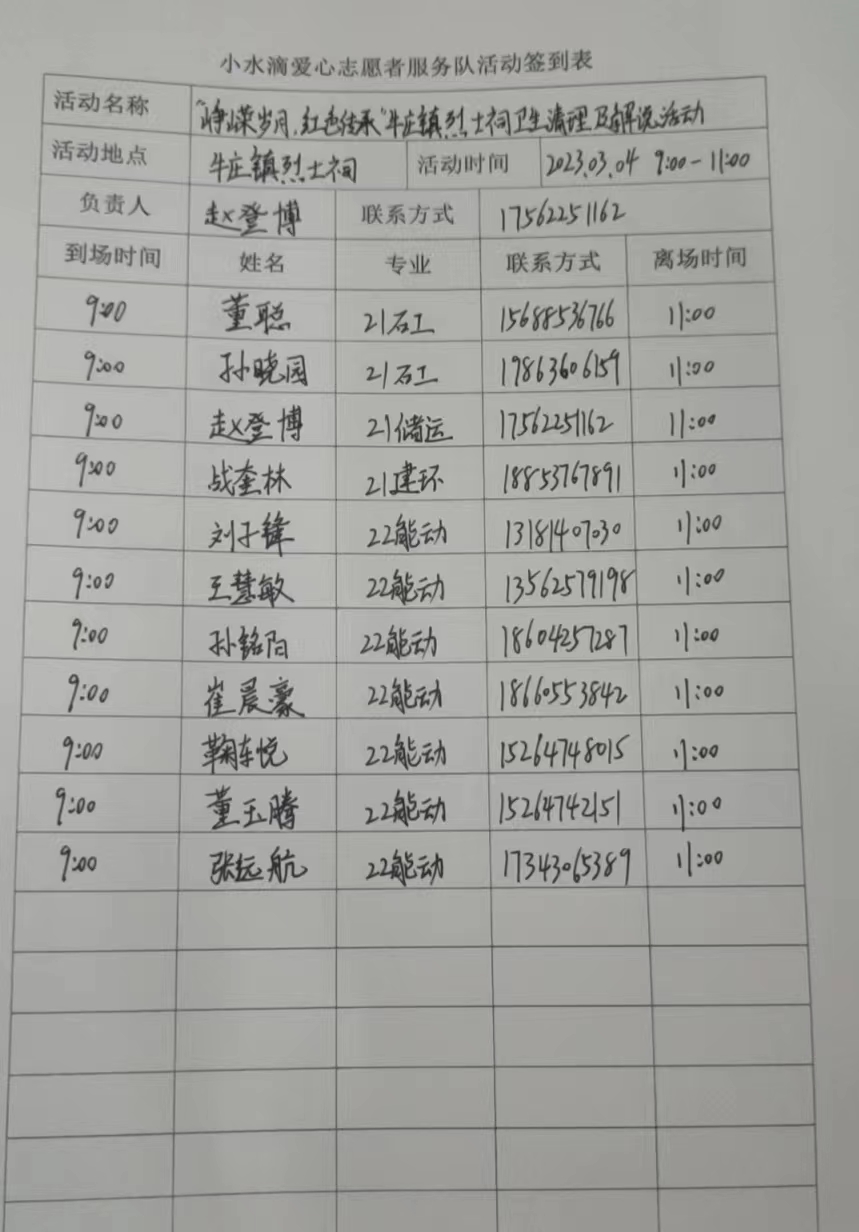 小水滴爱心志愿者服务队活动签到表
活动名称 "峥嵘岁月,红色传承"牛庄镇烈士祠卫生清理及解说活动
活动地点 牛庄镇烈士祠 活动时间 2023.03.04 9:00-11:00
负责人 赵登博 联系方式 17562251162
到场时间 姓名 专业 联系方式 离场时间
9:00 董聪 21石工 15688536766 11:00
9:00 孙晓园 21石工 19863606159 11:00
9:00 赵登博 21储运 17562251162 11:00
9:00 战奎林 21建环 18853767891 11:00
9:00 刘子锋 22能动 13181407030 11:00
9:00 王慧敏 22能动 13562579198 11:00
9:00 孙铭阳 22能动 18604257287 11:00
9:00 崔晨豪 22能动 18660553842 11:00
9:00 鞠东悦 22能动 15264748015 11:00
9:00 董玉腾 22能动 15264742151 11:00
9:00 张远航 22能动 17343065389 11:00